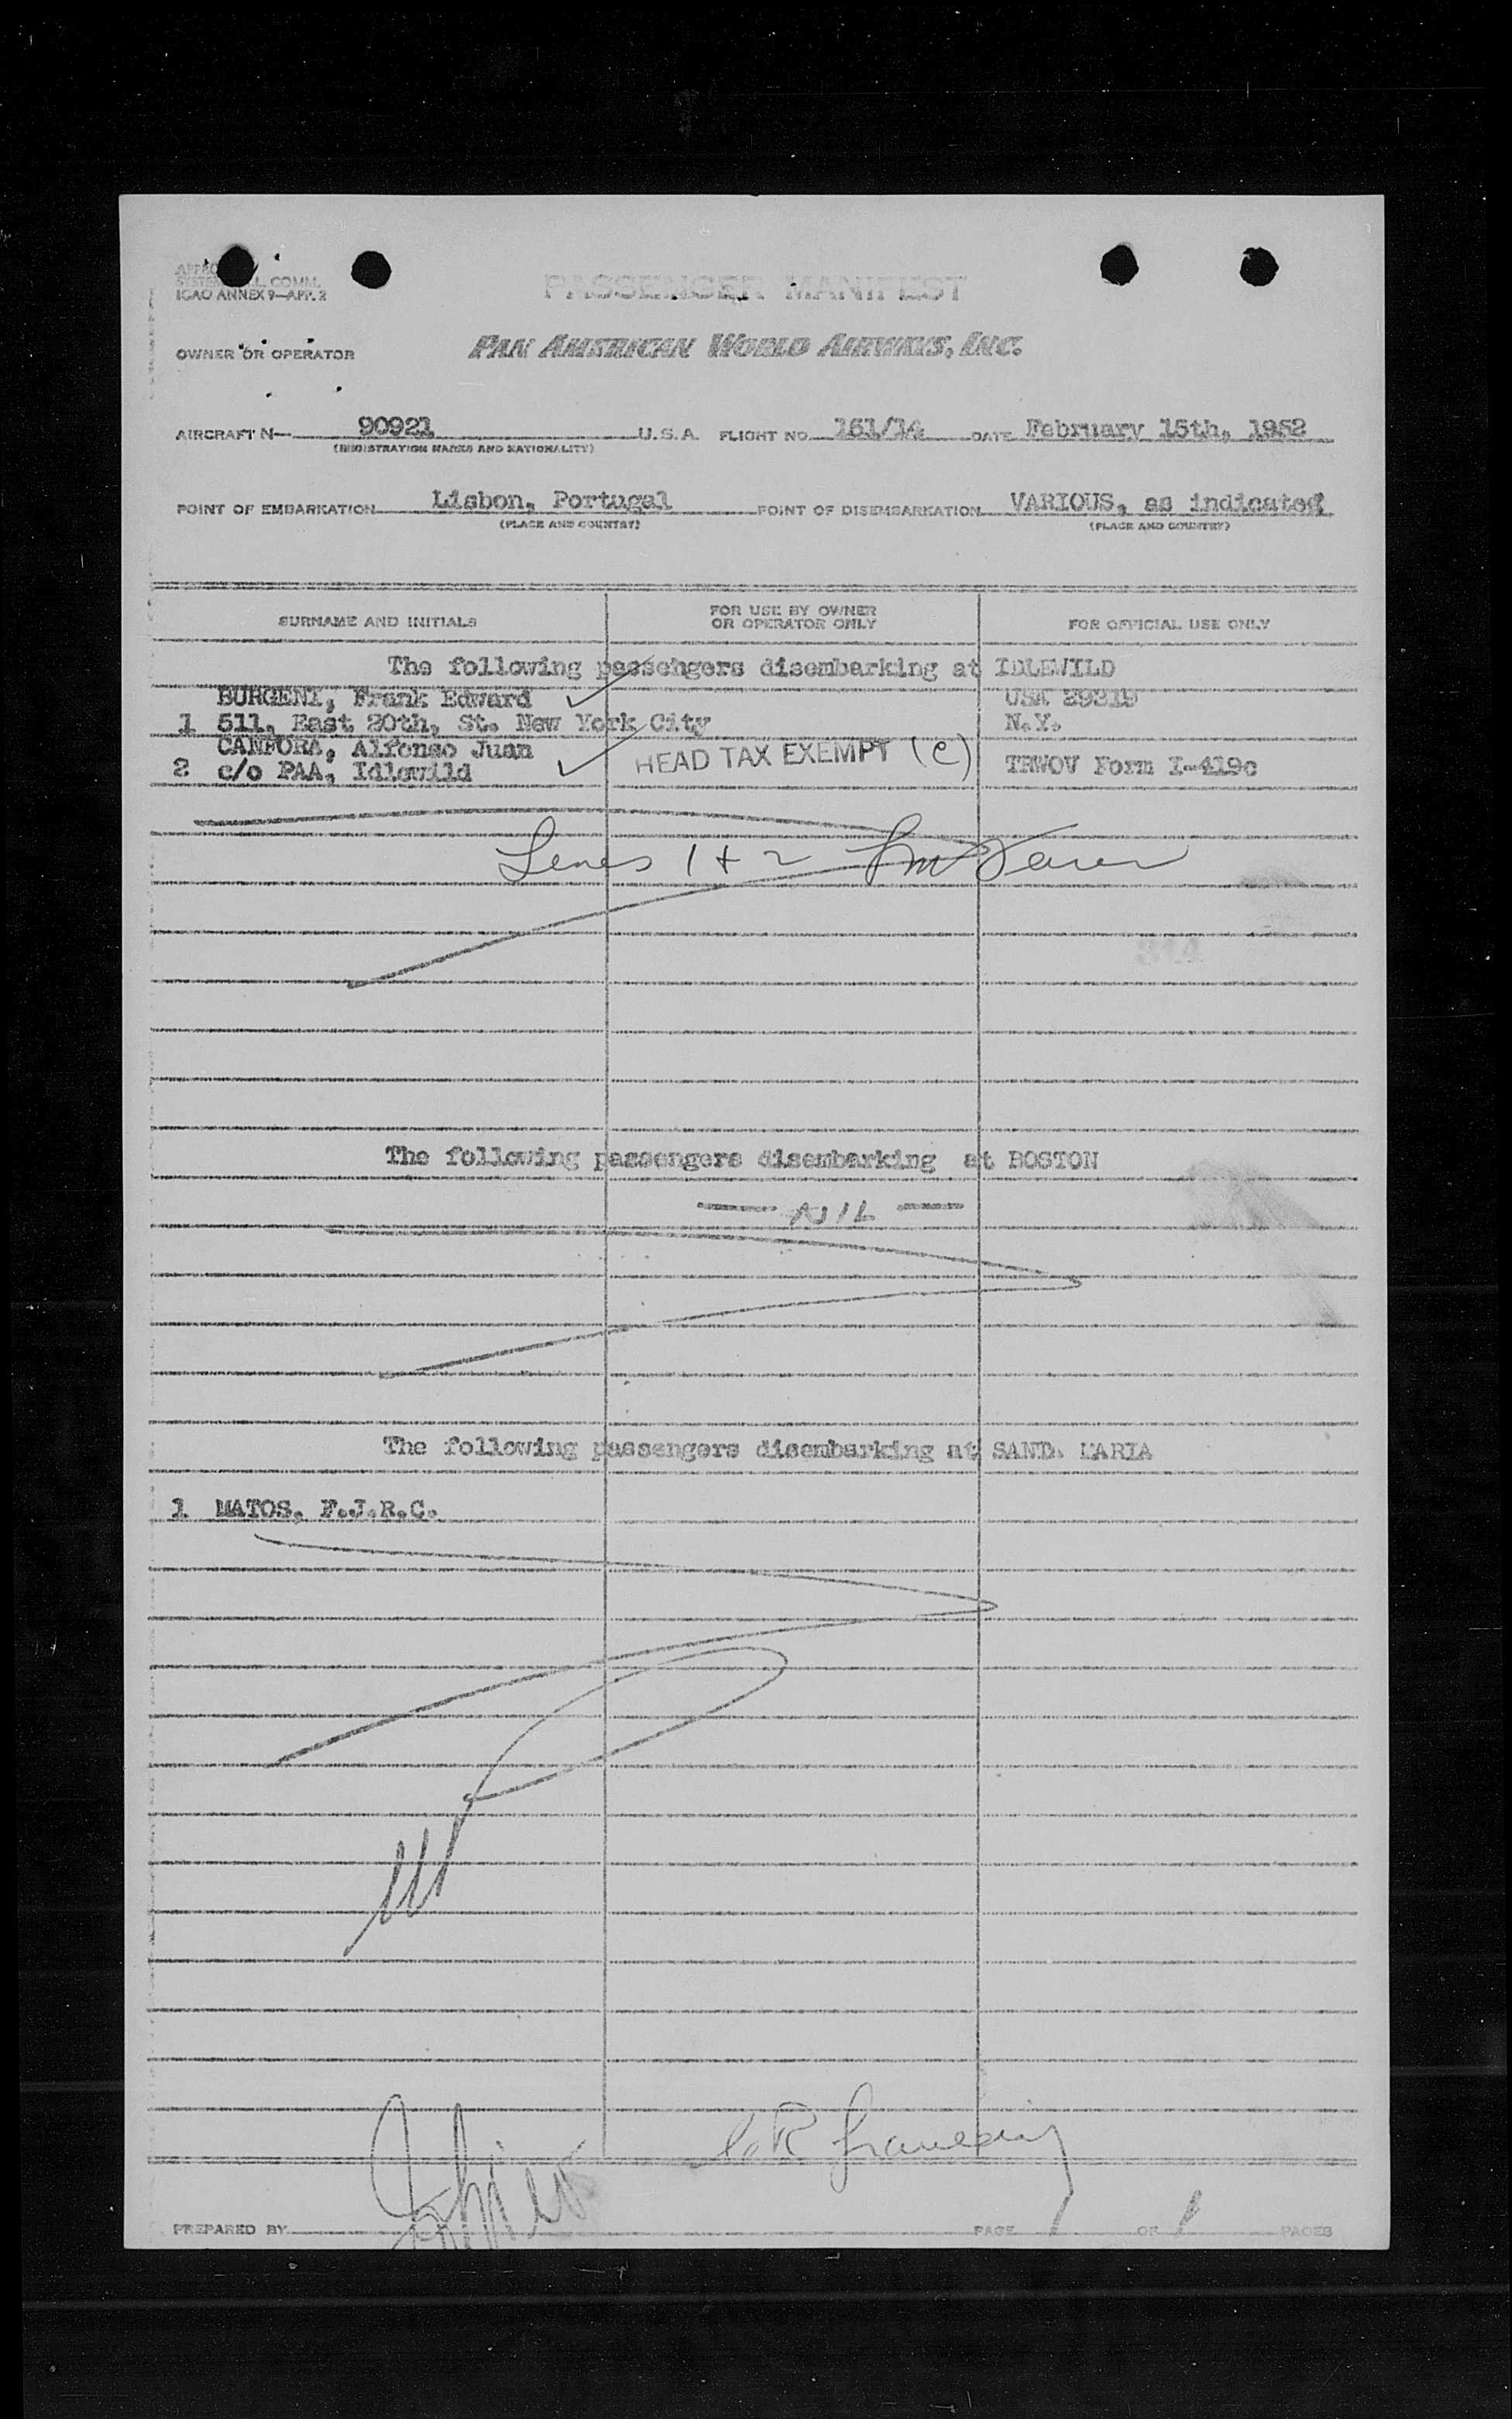 ICAO ANNEX 9—APP. 2
PASSENGER MANIFEST
OWNER OR OPERATOR PAN AMERICAN WORLD AIRWAYS, INC.
AIRCRAFT N— 90921 U.S.A. FLIGHT NO. 161/14 DATE February 15th, 1952
(REGISTRATION MARKS AND NATIONALITY)
POINT OF EMBARKATION Lisbon, Portugal POINT OF DISEMBARKATION VARIOUS, as indicated
(PLACE AND COUNTRY) (PLACE AND COUNTRY)
SURNAME AND INITIALS FOR USE BY OWNER OR OPERATOR ONLY FOR OFFICIAL USE ONLY
The following passengers disembarking at IDLEWILD
BURGENI, Frank Edward USA 29219
1 511, East 20th, St. New York City N.Y.
CANFORA, Alfonso Juan
2 c/o PAA, Idlewild HEAD TAX EXEMPT (C) TRWOV Form I-419c
Lines 1 + 2
314
The following passengers disembarking at BOSTON
— NIL —
The following passengers disembarking at SANTA MARIA
1 MATOS, F.J.R.C.
PREPARED BY PAGE 1 OF 1 PAGES